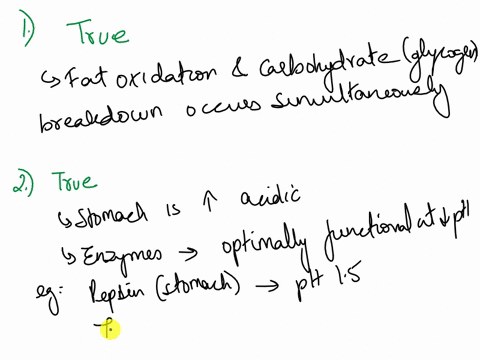 1.) True
↳ Fat oxidation & carbohydrate (glycogen)
breakdown occurs simultaneously
2.) True
↳ Stomach is ↑ acidic
↳ Enzymes → optimally functional at ↓ pH
eg: Pepsin (stomach) → pH 1.5